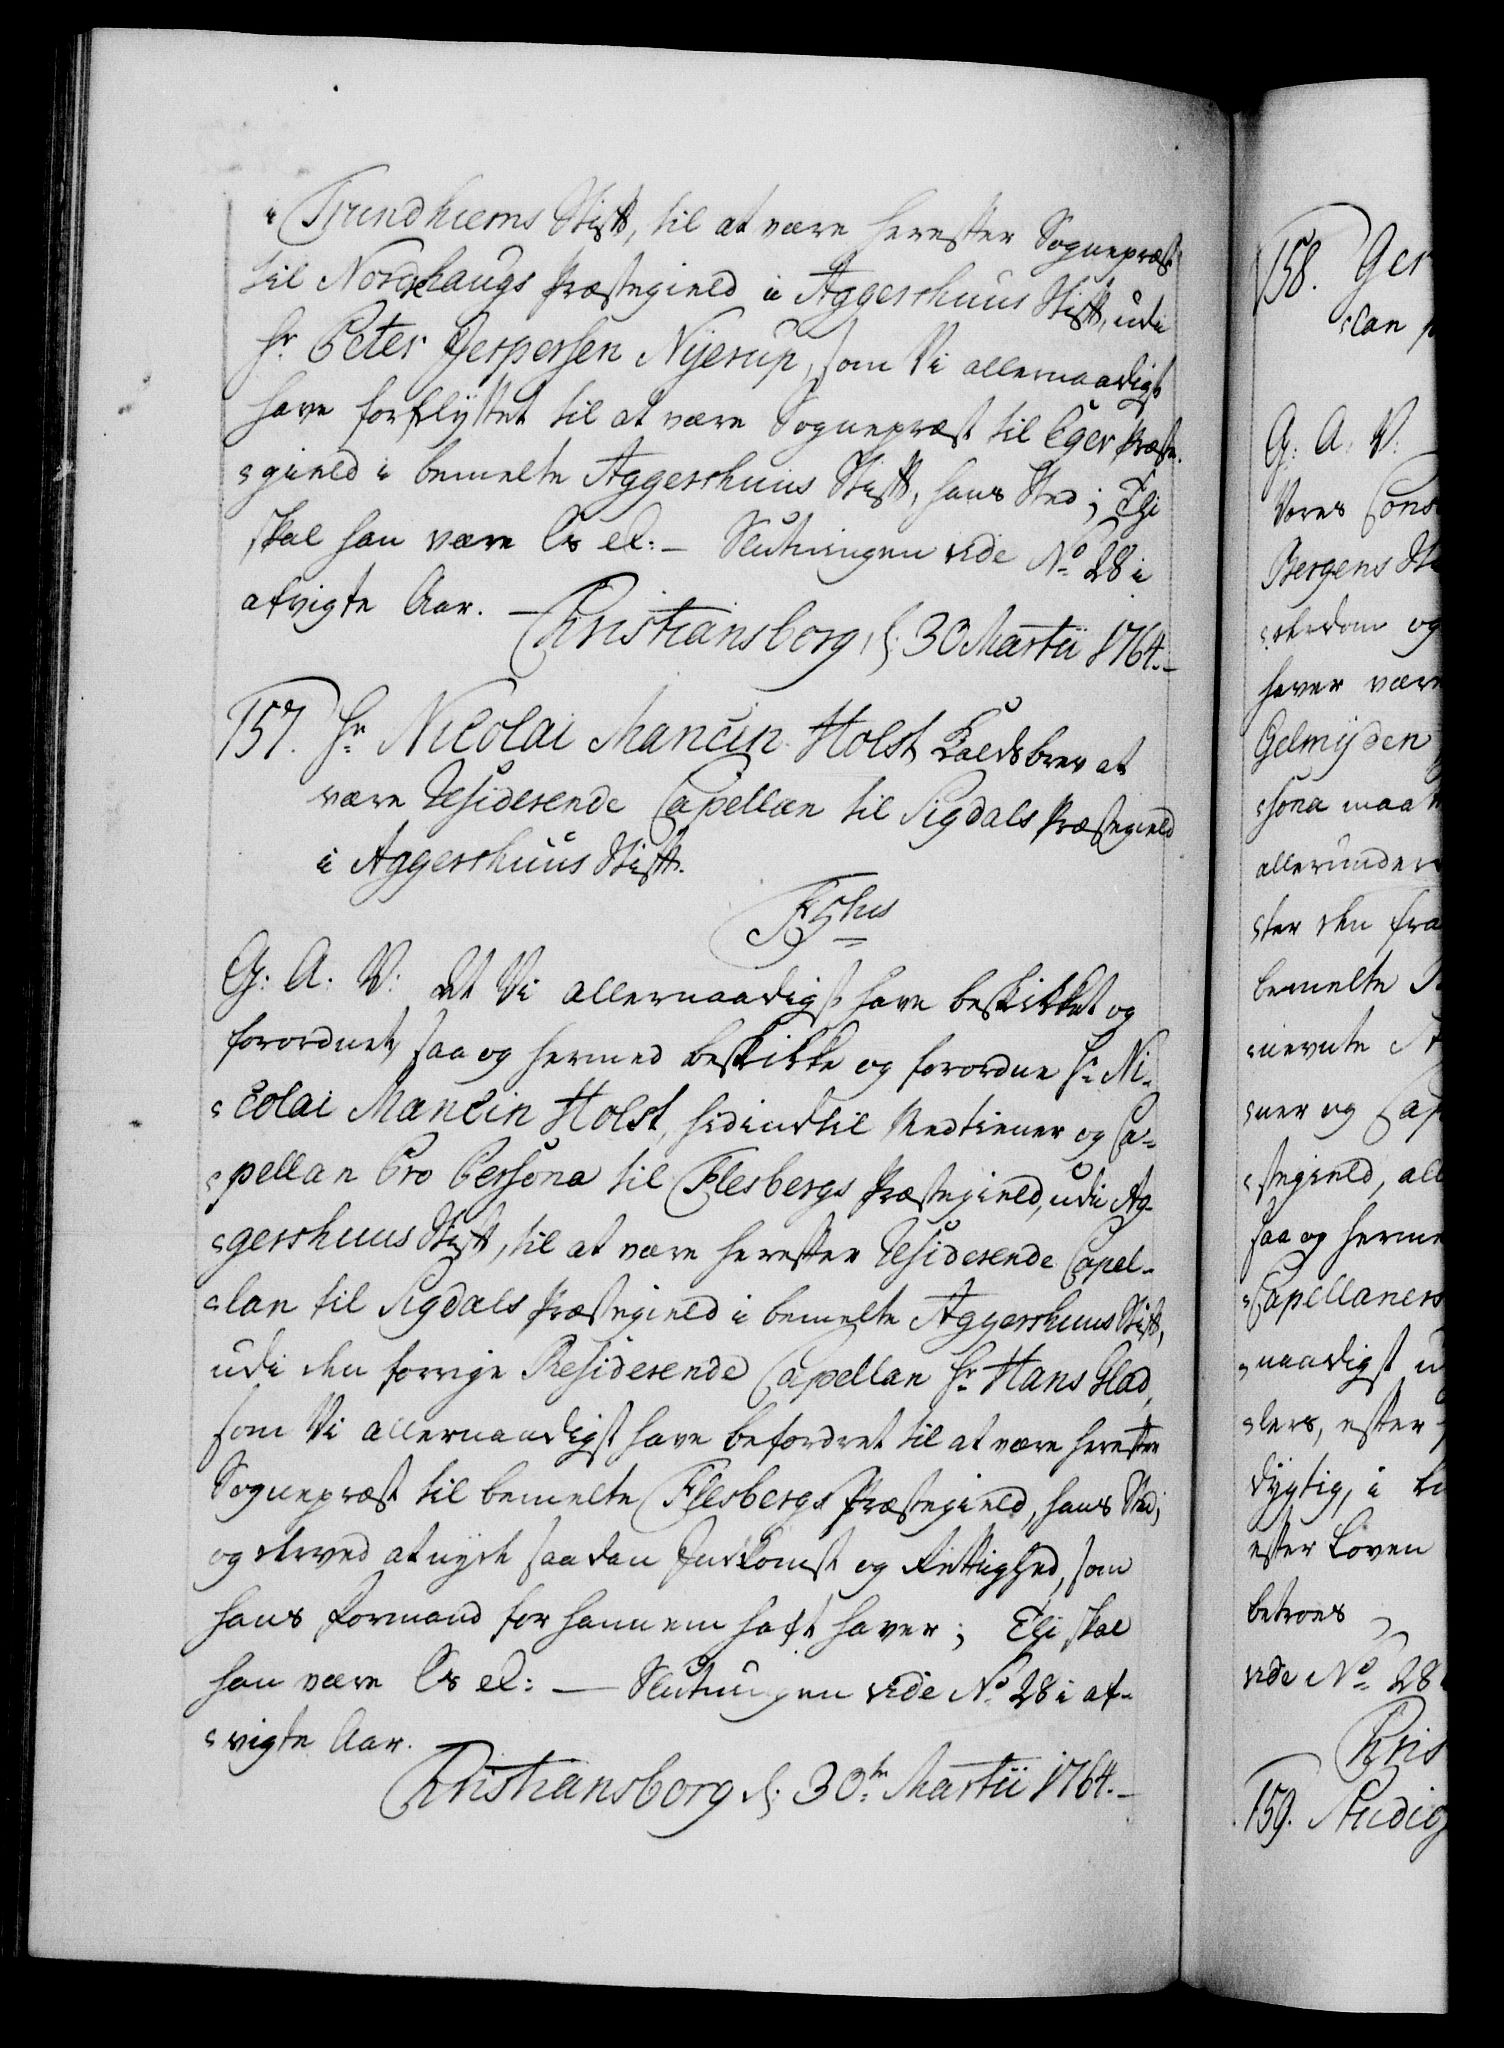 i Trundhiems Stift, til at være herefter Sognepræst
til Nordrehaugs Præstegield i Aggershuus Stift, udi
Hr Peter Jespersen Nyerup, som Vi allernaadigst
have forflyttet til at være Sognepræst til Eger Præste-
gield i bemelte Aggershuus Stift, hans Sted; Thi
skal han være Os etc: - Slutningen vide No 28 i
afvigte Aar. -
Christiansborg, d. 30 Martii 1764.-
157. Hr Nicolai Mancin Holst Kaldsbrev at
være Residerende Capellan til Sigdals Præstegield
i Aggershuus Stift.
F5tus
G: A: V: At Vi allernaadigst have beskikket og
forordnet, saa og hermed beskikke og forordne Hr Ni-
colai Mancin Holst, hidindtil Medtiener og Ca-
pellan Pro Persona til Flesbergs Præstegield, udi Ag-
gershuus Stift, til at være herefter Residerende Capel-
lan til Sigdals Præstegield i bemelte Aggershuus Stift,
udi den forrige Residerende Capellan Hr Hans Glad,
som Vi allernaadigst have befordret til at være herefter
Sognepræst til bemelte Flesbergs Præstegield, hans Sted;
og derved at nyde saadan Indkomst og Rettighed, som
hans Formand for hannem haft haver; Thi skal
han være Os etc: - Slutningen vide No 28 i af-
vigte Aar.
Christiansborg d. 30te Martii 1764.-
158. Ger
lan p
G: A: V:
Vores Cons
Bergens St
derdom og
haver være
Gelmyden
sona maa
allerunder
ter den fra
bemelte
nevnte St
ner og Cap
stegield, all
saa og herme
Capellaners
naadigst u
ders, efter
dygtig, i
efter Loven
betroes
vide No 28
Chris
159. Rudig